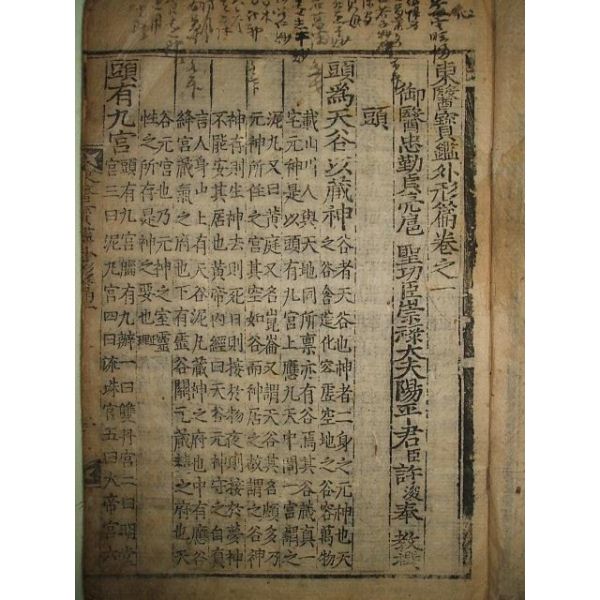 東醫寶鑑外形篇卷之一
御醫忠勤貞亮扈 聖功臣崇祿大夫陽平君臣許浚奉 教撰
頭
頭爲天谷以藏神
谷者天谷也神者一身之元神也天
之谷含造化容虛空地之谷容萬物
載山川人與天地同所禀亦有谷焉其谷藏眞一
宅元神是以頭有九宮上應九天中間一宮謂之
泥丸又曰黃庭又名崑崙又謂天谷其名頗多乃
元神所住之宮其空如谷而神居之故謂之谷神
神存則生神去則死日則接於物夜則接於夢神
不能安其居也黃帝內經曰天谷元神守之自眞
言人身中上有天谷泥丸藏神之府也中有應谷
絳宮藏氣之府也下有靈谷關元藏精之府也天
谷元宮也乃元神之室靈
性之所存是神之要也
頭有九宮
頭有九宮腦有九瓣一曰雙丹宮二曰明堂
宮三曰泥丸宮四曰流珠宮五曰大帝宮六